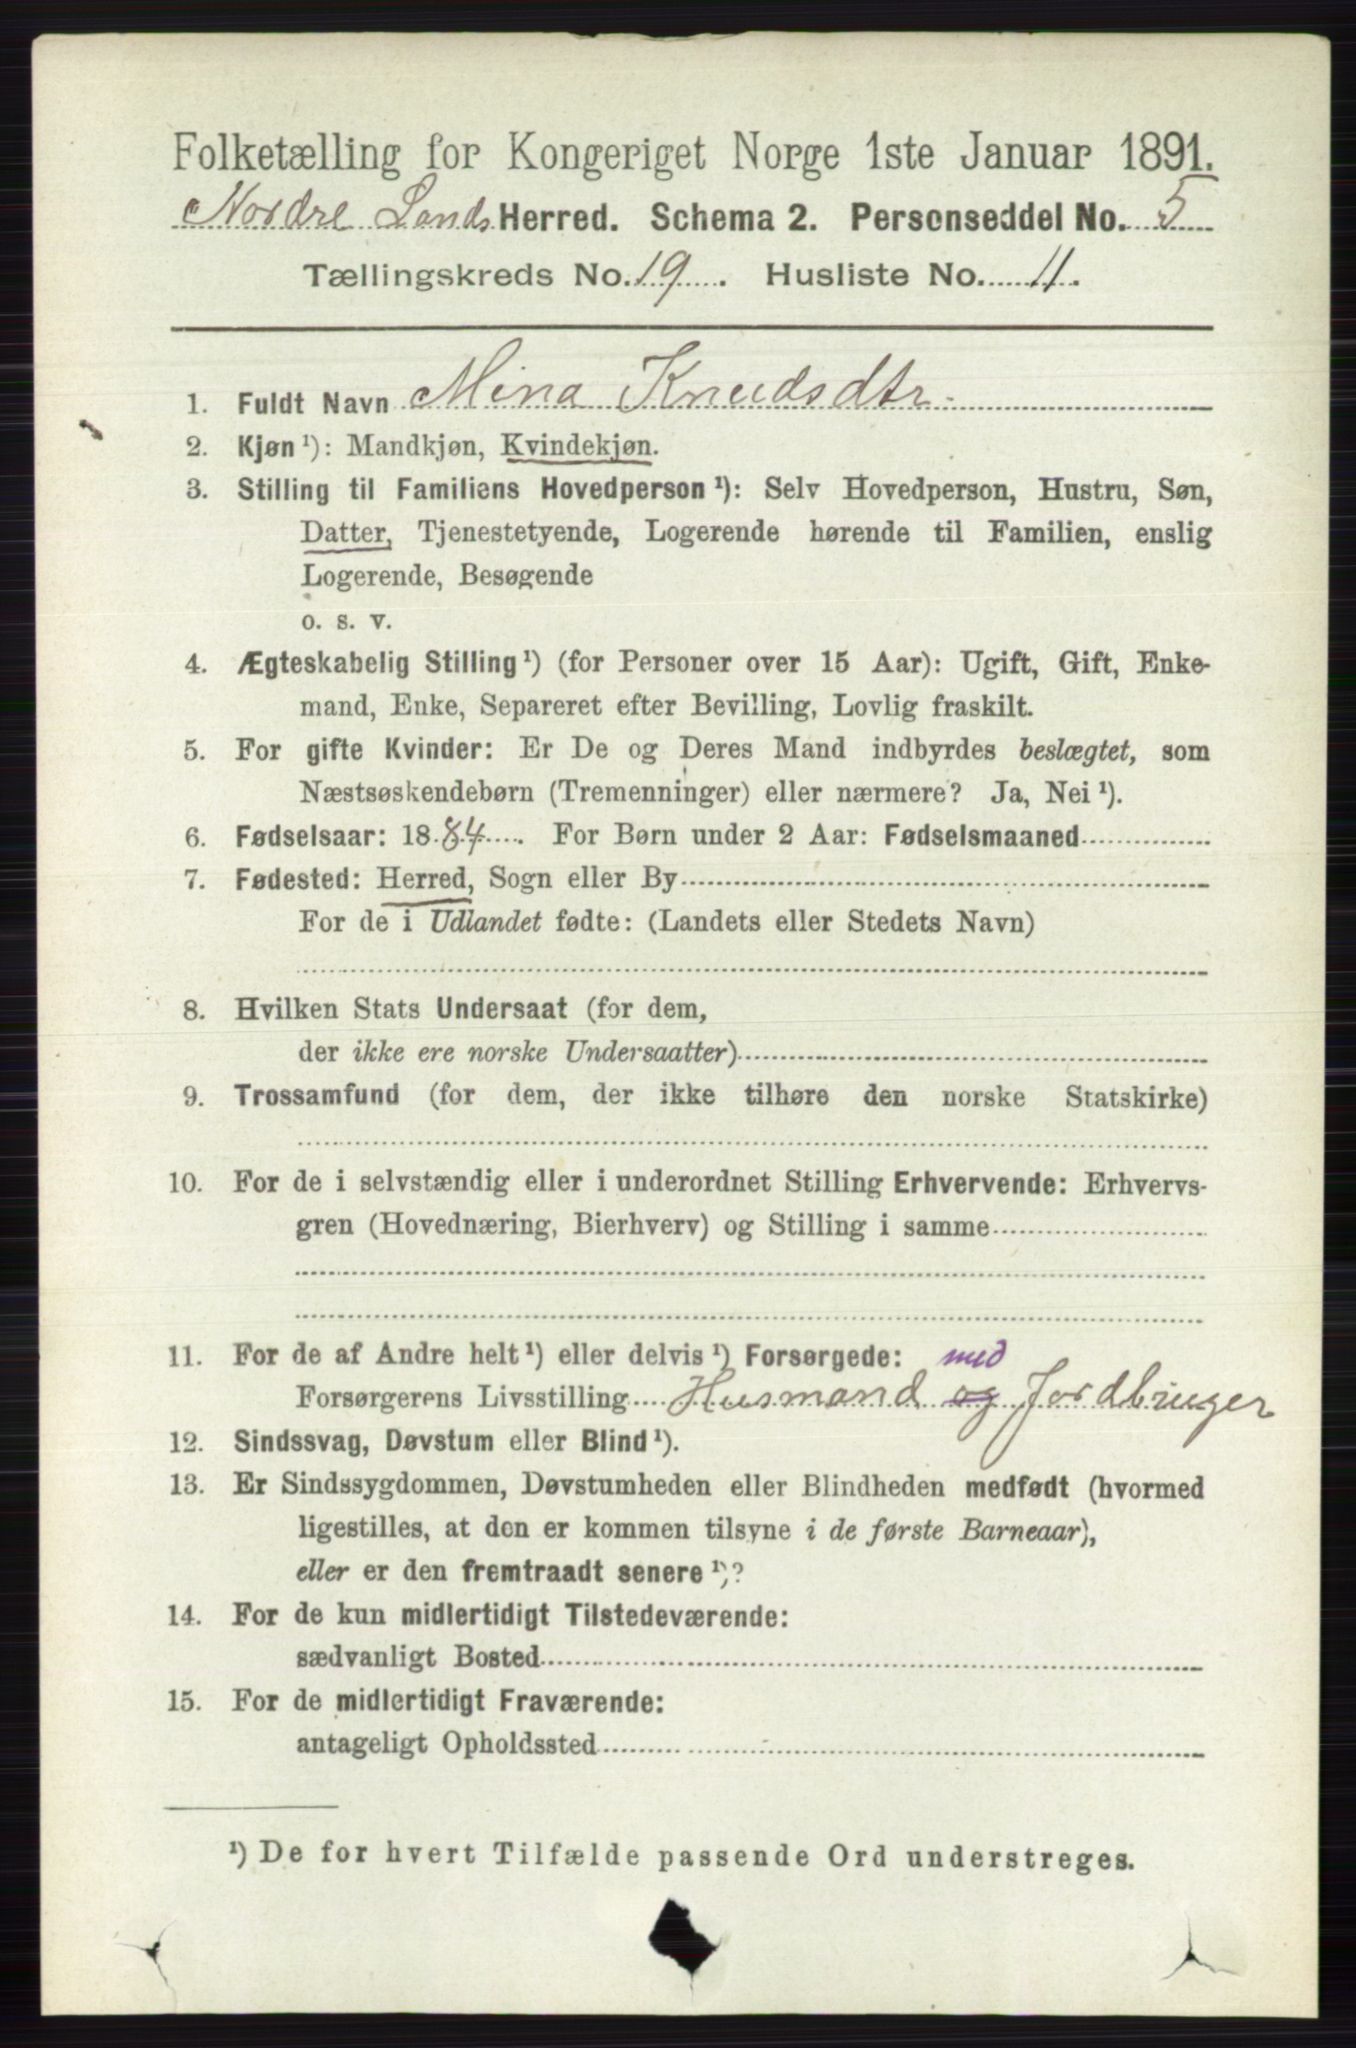 Folketælling for Kongeriget Norge 1ste Januar 1891.
Nordre Lands Herred. Schema 2. Personseddel No. 5
Tællingskreds No. 19. Husliste No. 11.
1. Fuldt Navn Mina Knudsdtr.
2. Kjøn ¹): Mandkjøn, Kvindekjøn.
3. Stilling til Familiens Hovedperson ¹): Selv Hovedperson, Hustru, Søn,
Datter, Tjenestetyende, Logerende hørende til Familien, enslig
Logerende, Besøgende
o. s. v.
4. Ægteskabelig Stilling ¹) (for Personer over 15 Aar): Ugift, Gift, Enke-
mand, Enke, Separeret efter Bevilling, Lovlig fraskilt.
5. For gifte Kvinder: Er De og Deres Mand indbyrdes beslægtet, som
Næstsøskendebørn (Tremenninger) eller nærmere? Ja, Nei ¹).
6. Fødselsaar: 1884. For Børn under 2 Aar: Fødselsmaaned
7. Fødested: Herred, Sogn eller By
For de i Udlandet fødte: (Landets eller Stedets Navn)
8. Hvilken Stats Undersaat (for dem,
der ikke ere norske Undersaatter)
9. Trossamfund (for dem, der ikke tilhøre den norske Statskirke)
10. For de i selvstændig eller i underordnet Stilling Erhvervende: Erhvervs-
gren (Hovednæring, Bierhverv) og Stilling i samme
11. For de af Andre helt ¹) eller delvis ¹) Forsørgede: med
Forsørgerens Livsstilling Husmand og Jordbruger
12. Sindssvag, Døvstum eller Blind ¹).
13. Er Sindssygdommen, Døvstumheden eller Blindheden medfødt (hvormed
ligestilles, at den er kommen tilsyne i de første Barneaar),
eller er den fremtraadt senere ¹)?
14. For de kun midlertidigt Tilstedeværende:
sædvanligt Bosted
15. For de midlertidigt Fraværende:
antageligt Opholdssted
¹) De for hvert Tilfælde passende Ord understreges.